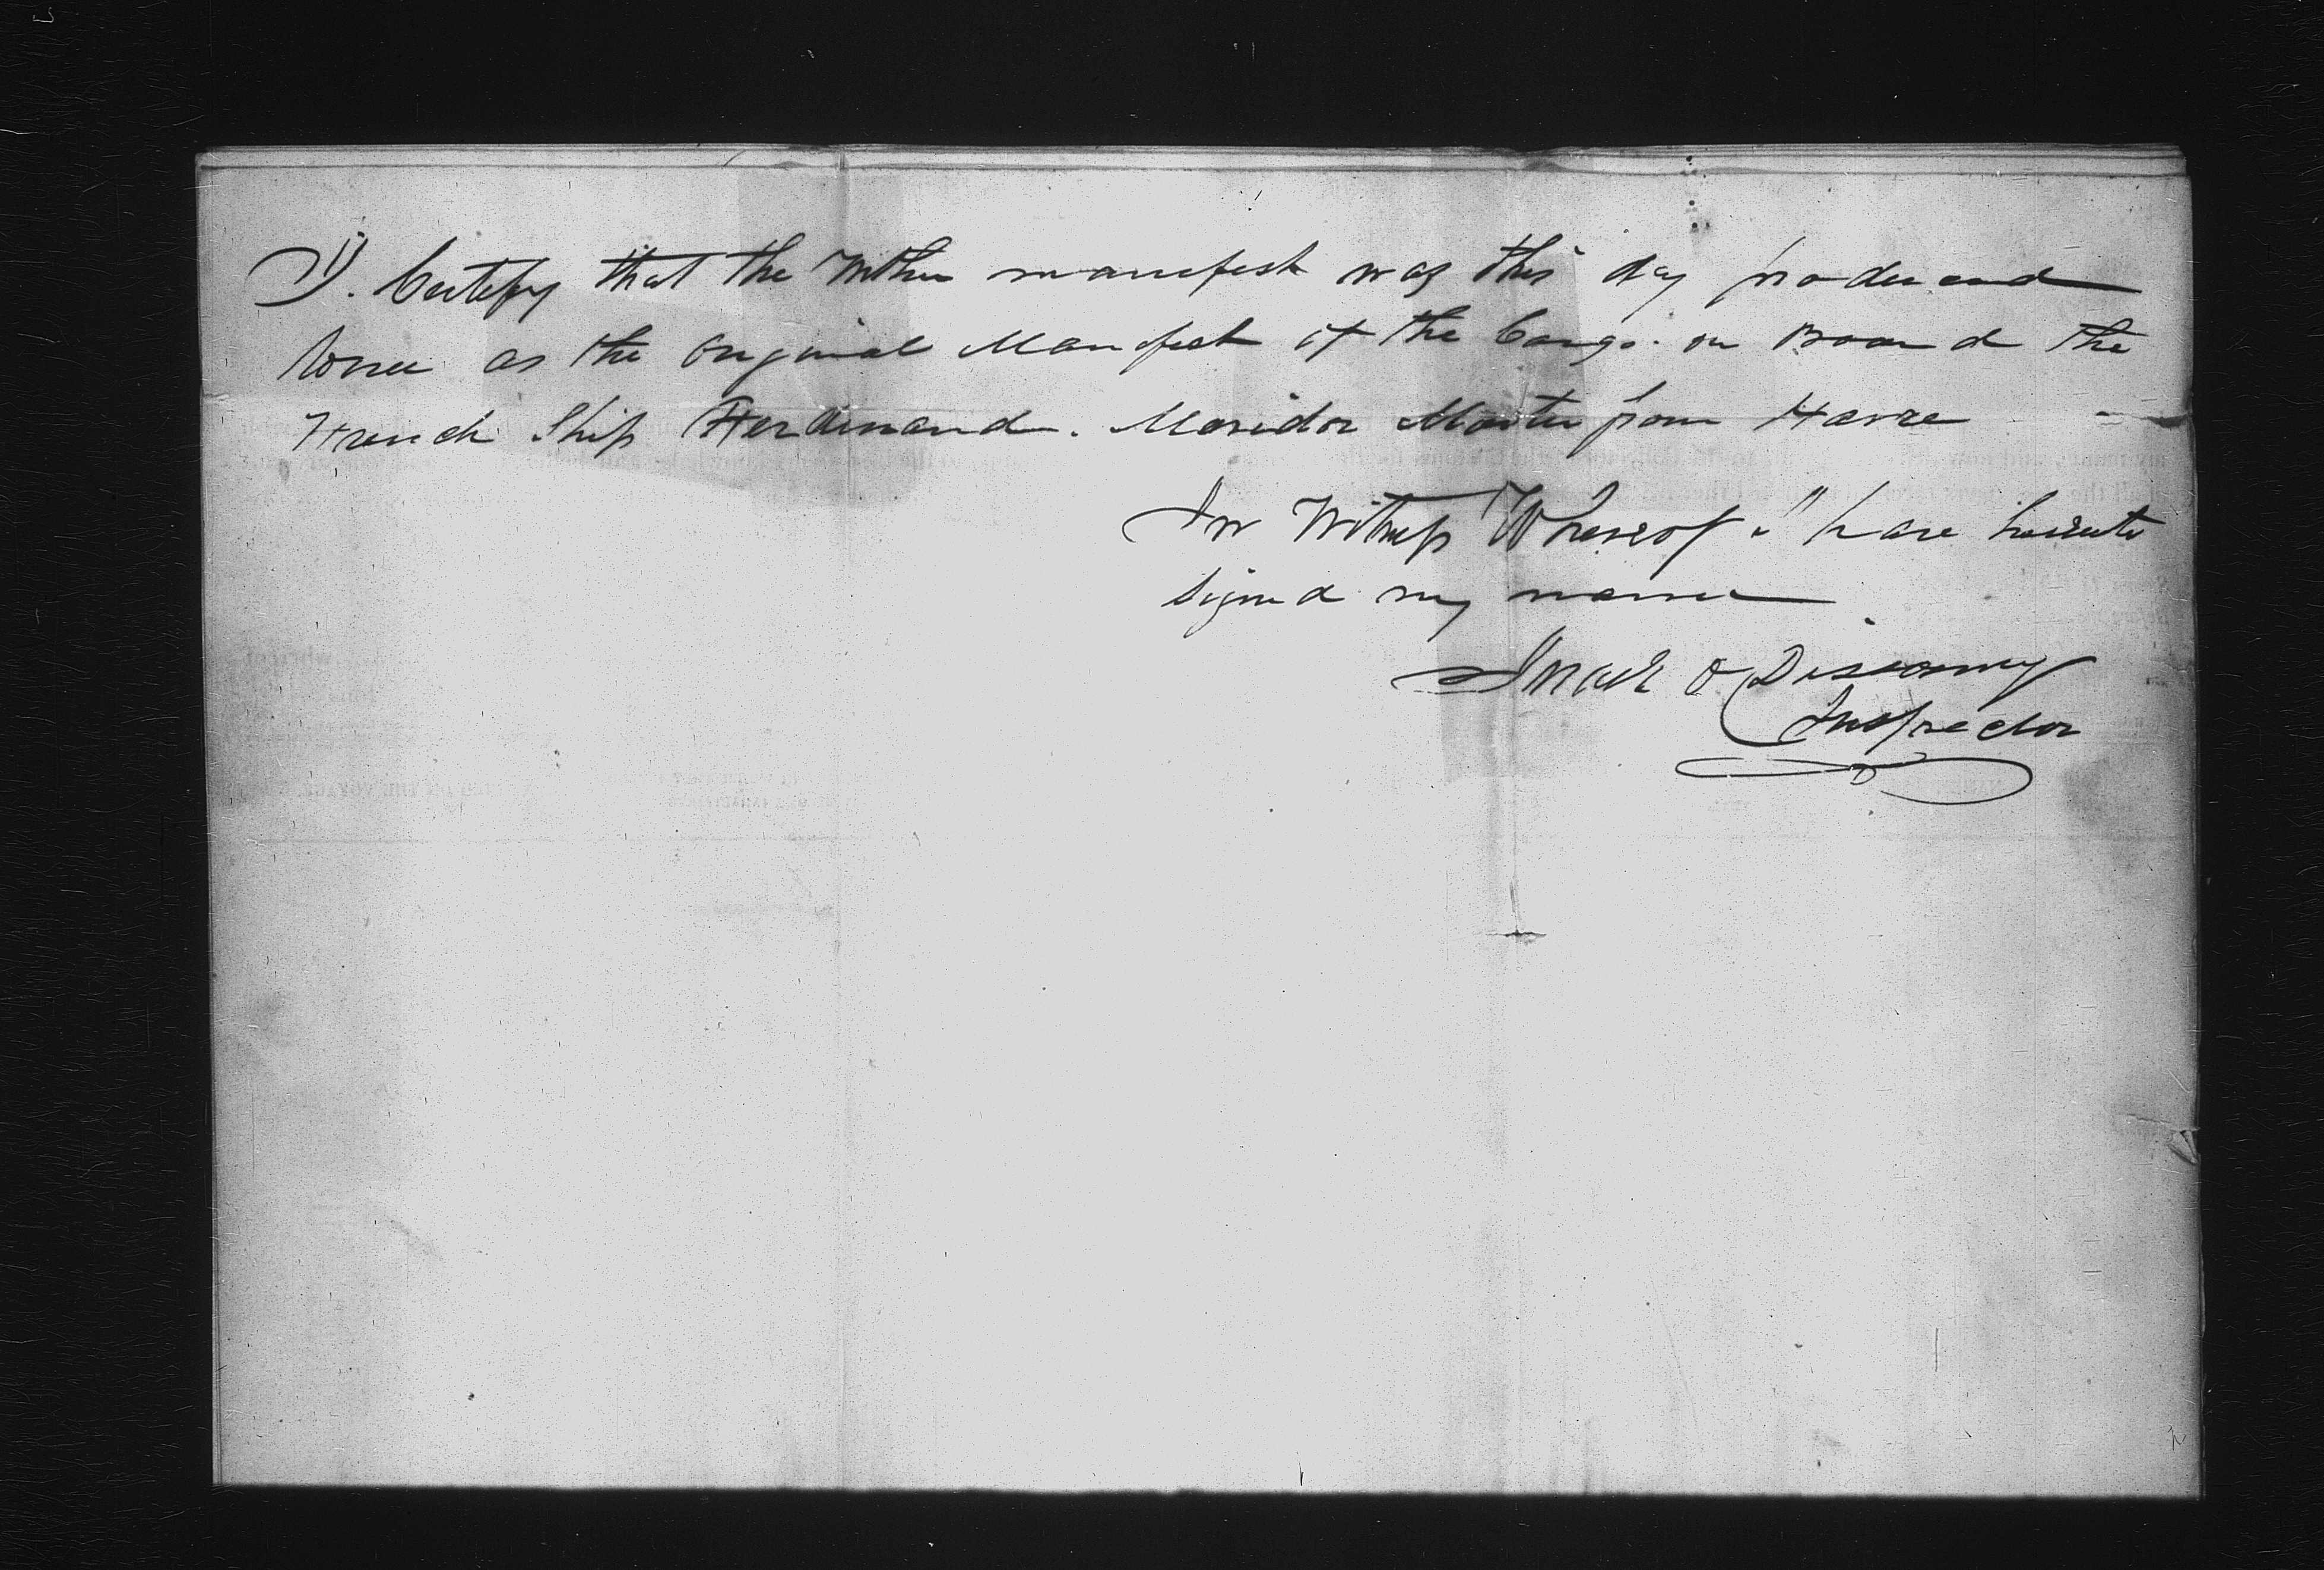 I. Certify that the Within manifest was this day produced
to me as the Original Manifest of the Cargo on Board the
French Ship Ferdinand. Master from Havre
In Witness Whereof I have hereunto
signed my name
Inspector